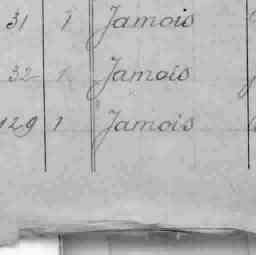 31 1 Jamois
32 1 Jamois
129 1 Jamois